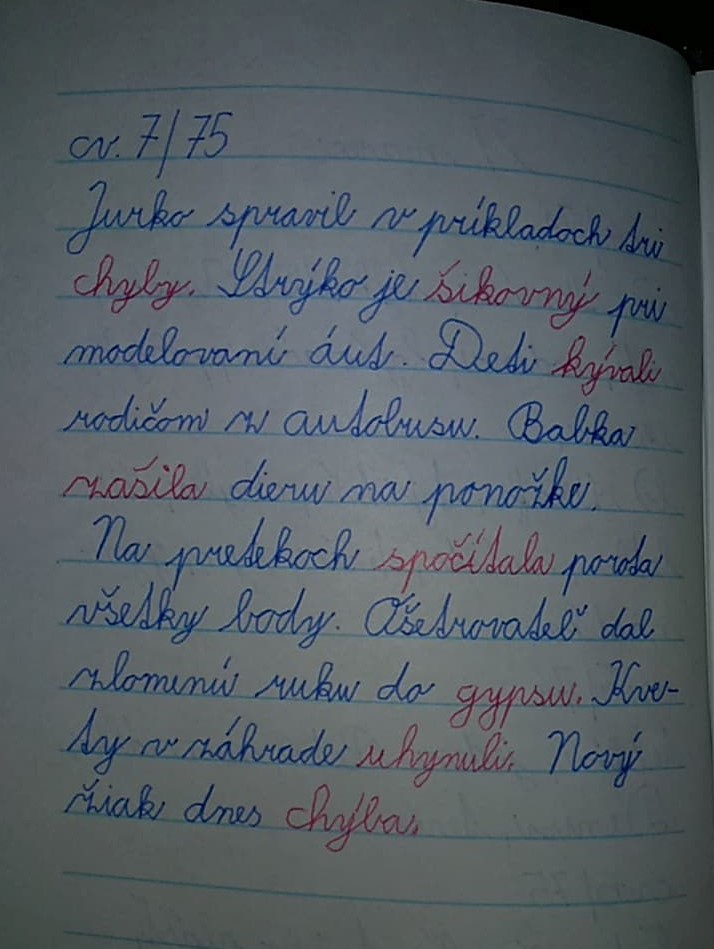 cv. 7/75
Jurko spravil v príkladoch tri
chyby. Strýko je šikovný pri
modelovaní áut. Deti kývali
rodičom z autobusu. Babka
zašila dieru na ponožke.
Na pretekoch spočítala porota
všetky body. Ošetrovateľ dal
zlomenú ruku do gypsu. Kve-
ty v záhrade uhynuli. Nový
žiak dnes chýba.